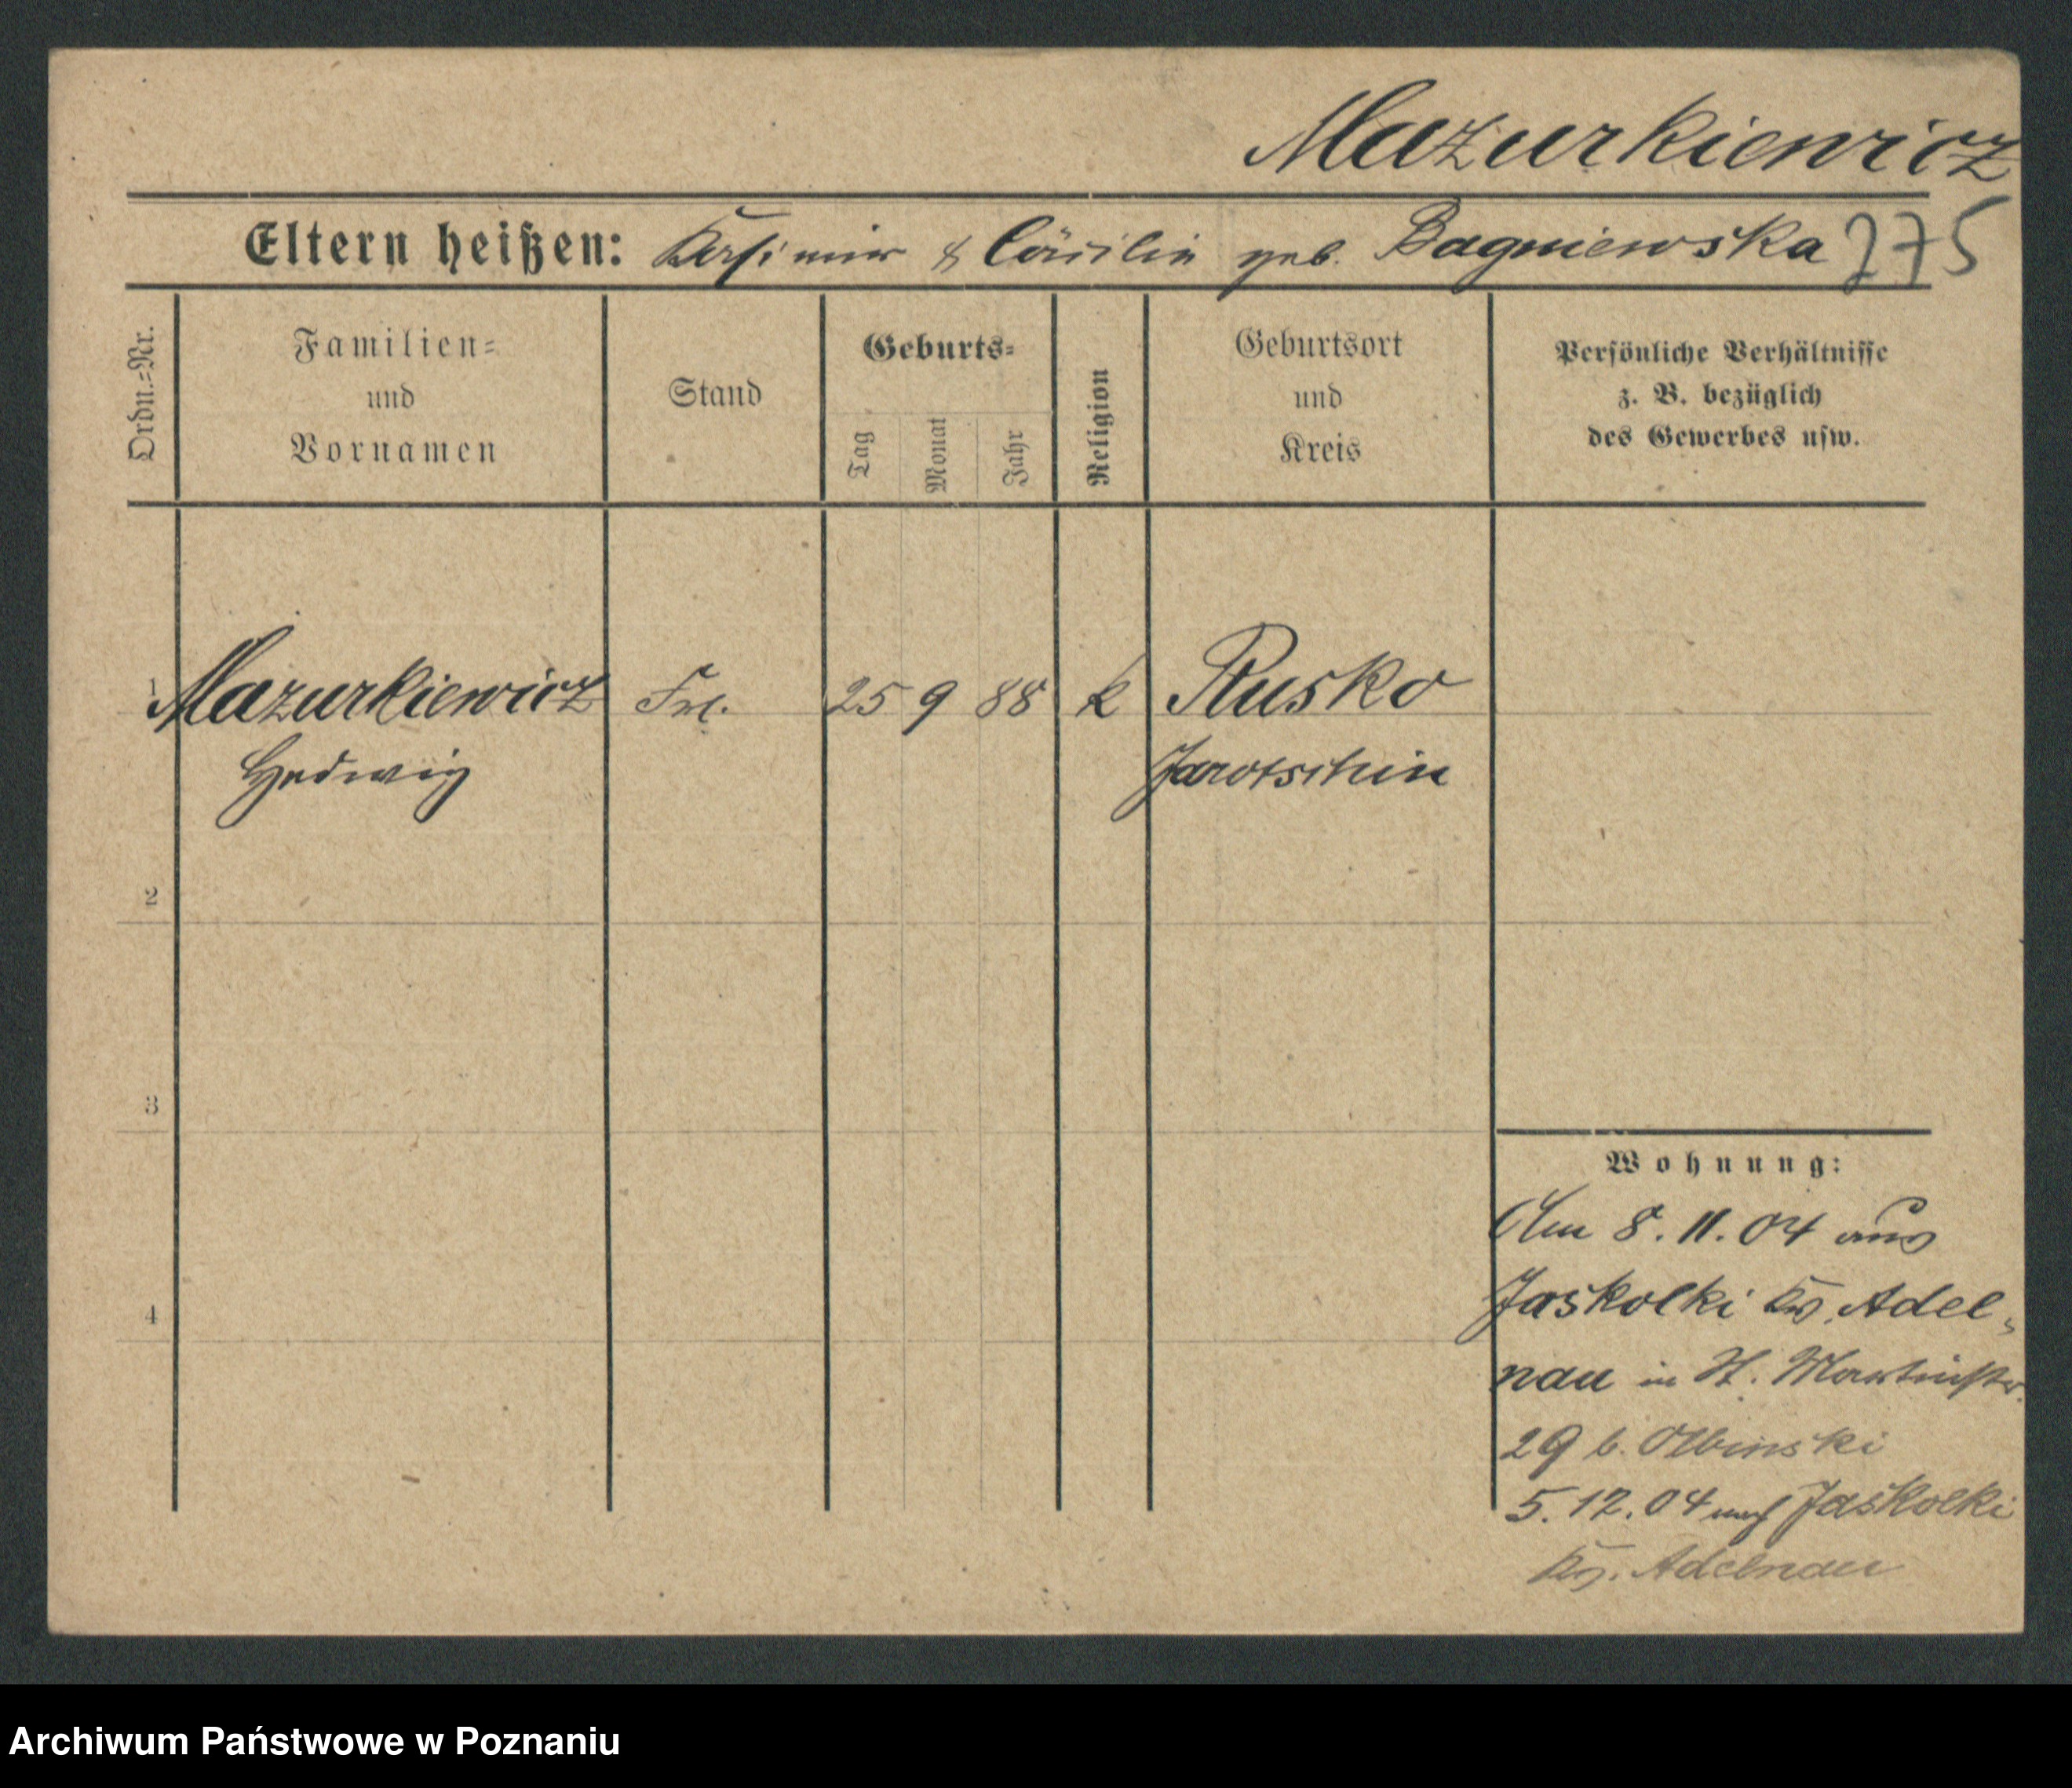 Mazurkiewicz
Eltern heißen: Kasimir & Cäcilie geb. Bagniewska 275
Ordn.-Nr.
Familien-
und
Vornamen
Stand
Geburts-
Tag
Monat
Jahr
Religion
Geburtsort
und
Kreis
Persönliche Verhältnisse
z. B. bezüglich
des Gewerbes usw.
1 Mazurkiewicz Frl. 25 9 88 k Rusko
Hedwig Jarotschin
2
3
4
Wohnung:
Am 8. 11. 04 aus
Jaskolki Kr. Adel-
nau in St. Martinstr.
29 b. Olbinski
5. 12. 04 nach Jaskolki
Kr. Adelnau
Archiwum Państwowe w Poznaniu